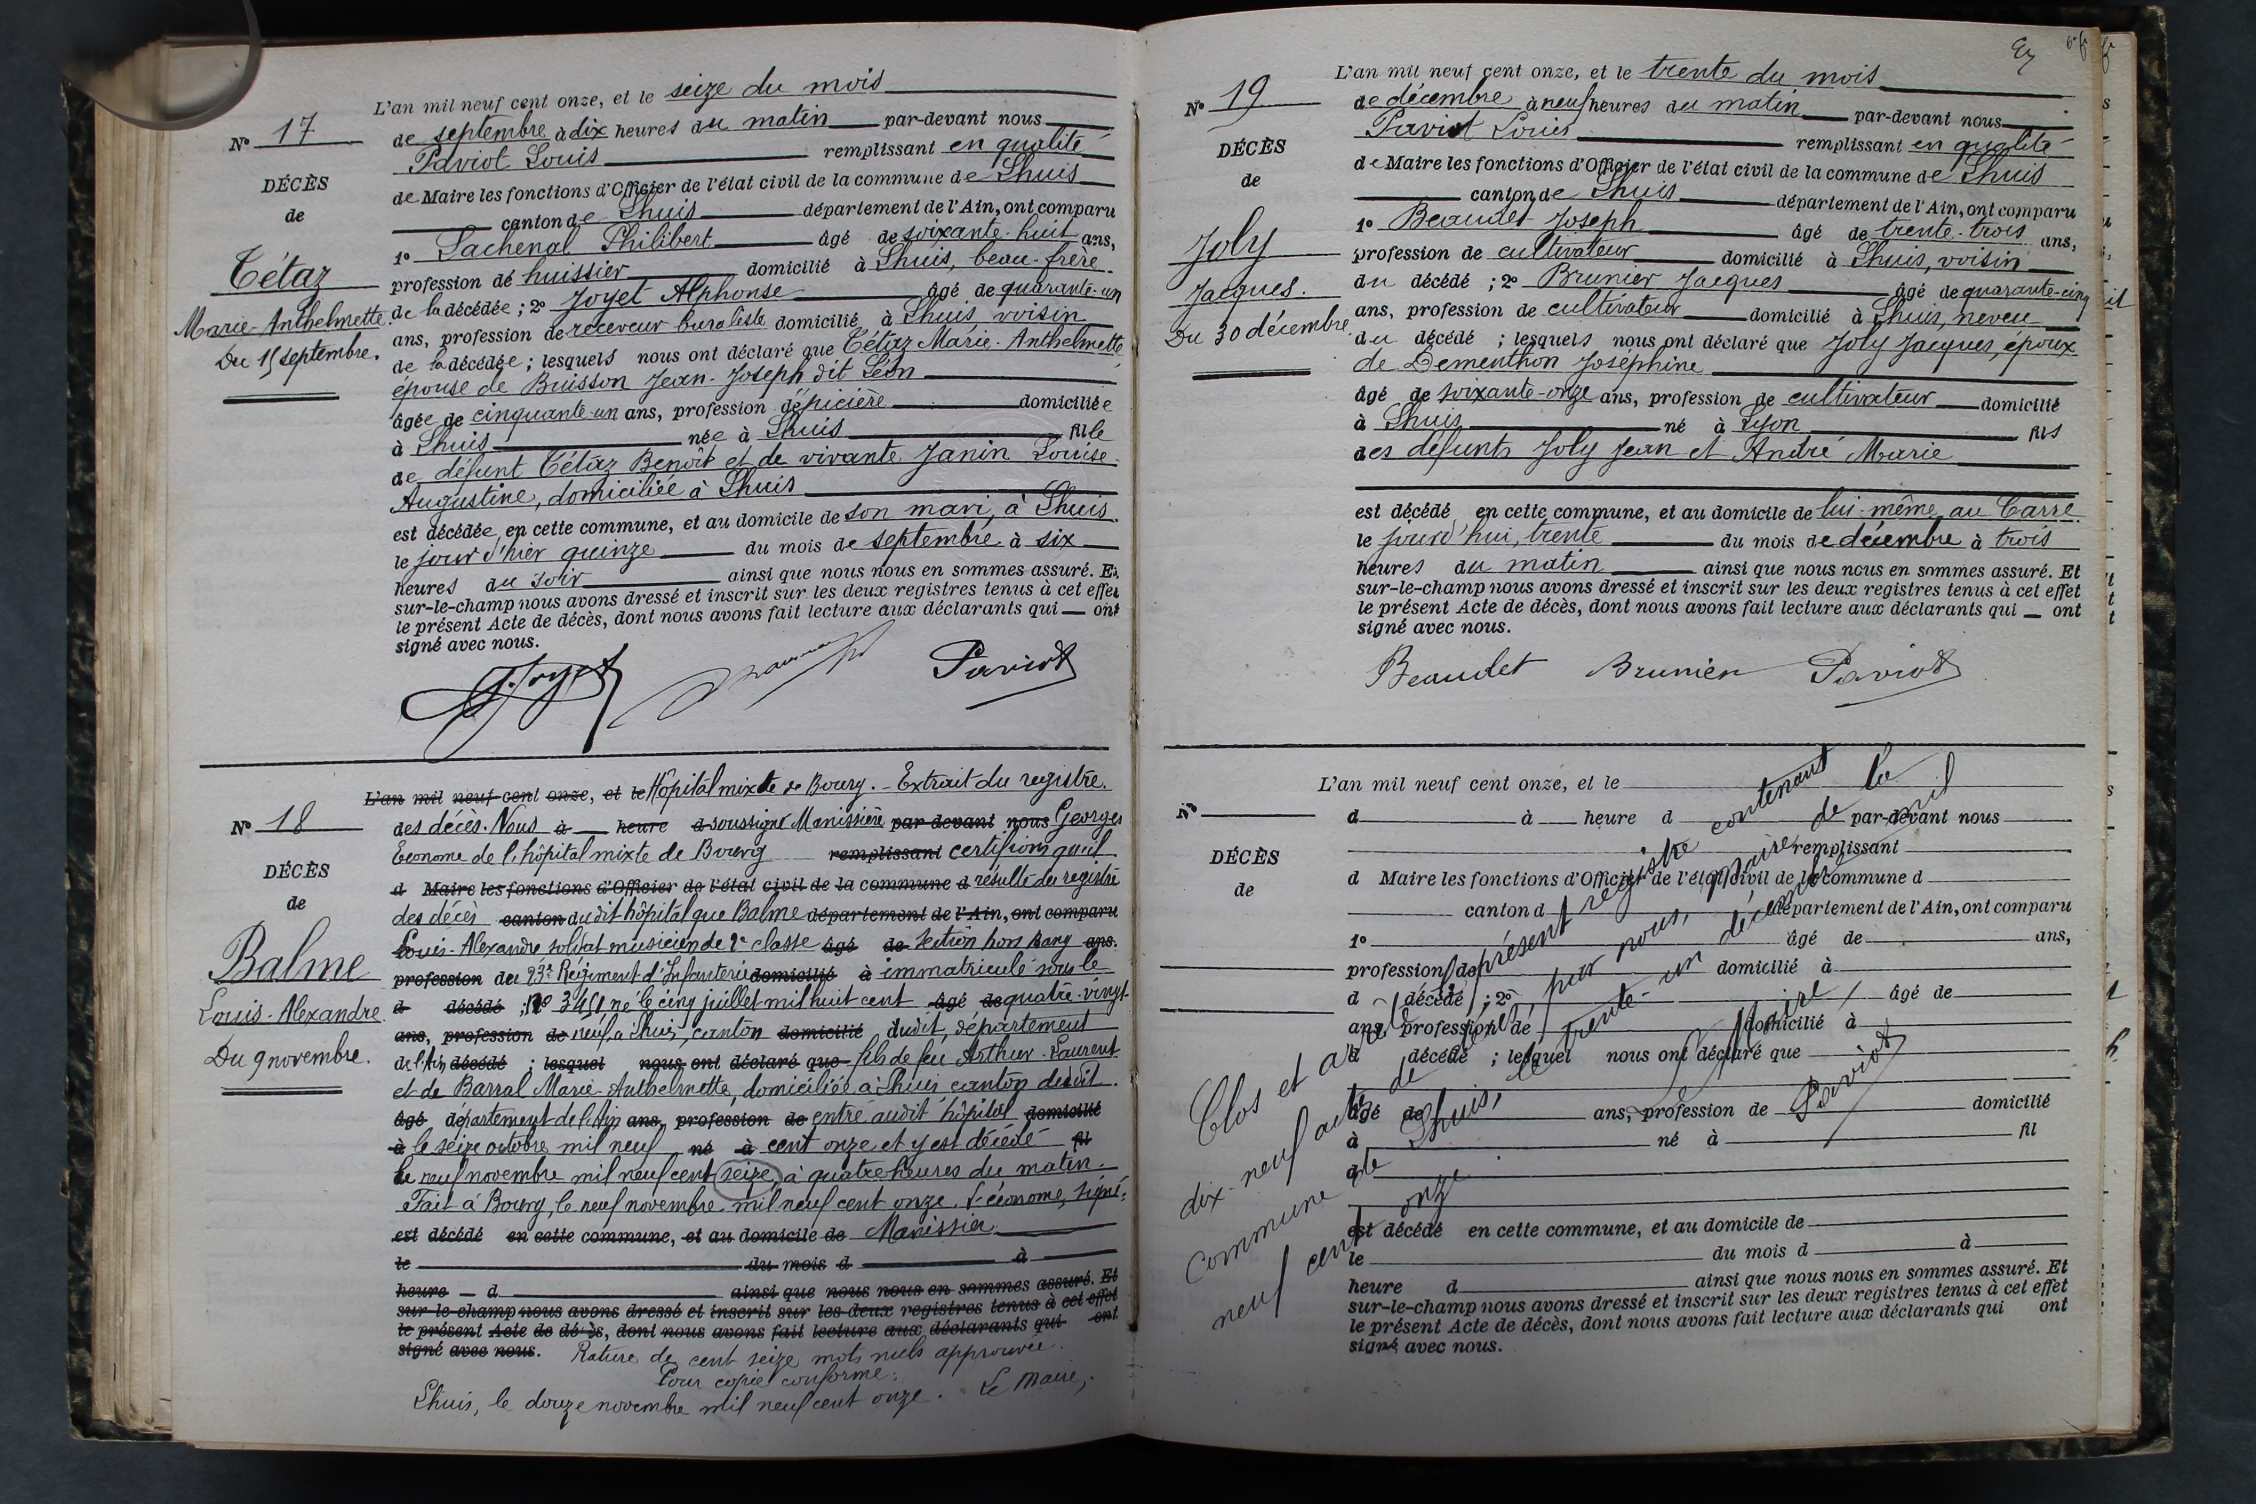 N° 17
DÉCÈS
de
Tétaz
Marie-Anthelmette.
Du 15 septembre.
L'an mil neuf cent onze, et le seize du mois
de septembre à dix heures du matin par-devant nous
Paviot Louis remplissant en qualité
de Maire les fonctions d'Officier de l'état civil de la commune de Lhuis
canton de Lhuis département de l'Ain, ont comparu
1° Lachenal Philibert âgé de soixante-huit ans,
profession de huissier domicilié à Lhuis, beau-frère
de la décédée ; 2° Joyet Alphonse âgé de quarante-un
ans, profession de receveur buraliste domicilié à Lhuis voisin
de la décédée ; lesquels nous ont déclaré que Tétaz Marie-Anthelmette,
épouse de Buisson Jean-Joseph dit Léon
âgée de cinquante-un ans, profession d'épicière domiciliée
à Lhuis née à Lhuis fille
de défunt Tétaz Benoît et de vivante Janin Louise-
Augustine, domiciliée à Lhuis
est décédée en cette commune, et au domicile de son mari, à Lhuis.
le jour d'hier quinze du mois de septembre à six
heures du soir ainsi que nous nous en sommes assuré. Et
sur-le-champ nous avons dressé et inscrit sur les deux registres tenus à cet effet
le présent Acte de décès, dont nous avons fait lecture aux déclarants qui ont
signé avec nous.
Joyet Paviot
N° 18
DÉCÈS
de
Balme
Louis-Alexandre.
Du 9 novembre.
L'an mil neuf cent onze, et le Hôpital mixte de Bourg. - Extrait du registre.
des décès. Nous à heure d soussigné Manissière par devant nous Georges
Econome de l'hôpital mixte de Bourg remplissant certifions qu'il
d Maire les fonctions d'Officier de l'état civil de la commune d résulte des registre
des décès canton dudit hôpital que Balme département de l'Ain, ont comparu
Louis-Alexandre soldat musicien de 2e classe âgé de Section hors Rang ans.
profession de 23e Régiment d'Infanterie domicilié à immatriculé sous le
d décédé ; N° 3451, né le cinq juillet mil huit cent âgé de quatre-vingt-
ans, profession de neuf à Lhuis, canton domicilié dudit, département
de l'Ain décédé ; lesquel nous ont déclaré que fils de feu Arthur-Laurent
et de Barral Marie-Anthelmette, domiciliée à Lhuis canton dudit.
âgé département de l'Ain ans, profession de entré audit hôpital domicilié
à le seize octobre mil neuf né à cent onze et y est décédé fil
le neuf novembre mil neuf cent seize, à quatre heures du matin.
Fait à Bourg, le neuf novembre mil neuf cent onze. L'économe, signé :
est décédé en cette commune, et au domicile de Manissier
le du mois d à
heure d ainsi que nous nous en sommes assuré. Et
sur-le-champ nous avons dressé et inscrit sur les deux registres tenus à cet effet
le présent Acte de décès, dont nous avons fait lecture aux déclarants qui ont
signé avec nous. Rature de cent seize mots nuls approuvée.
Pour copie conforme.
Lhuis, le douze novembre mil neuf cent onze. Le Maire,
N° 19
DÉCÈS
de
Joly
Jacques.
Du 30 décembre.
L'an mil neuf cent onze, et le trente du mois
de décembre à neuf heures du matin par-devant nous
Paviot Louis remplissant en qualité
de Maire les fonctions d'Officier de l'état civil de la commune de Lhuis
canton de Lhuis département de l'Ain, ont comparu
1° Beaudet Joseph âgé de trente-trois ans,
profession de cultivateur domicilié à Lhuis, voisin
du décédé ; 2° Brunier Jacques âgé de quarante-cinq
ans, profession de cultivateur domicilié à Lhuis, neveu
du décédé ; lesquels nous ont déclaré que Joly Jacques, époux
de Dementhon Joséphine
âgé de soixante-onze ans, profession de cultivateur domicilié
à Lhuis né à Lyon fils
des défunts Joly Jean et André Marie
est décédé en cette commune, et au domicile de lui-même au Carre
le jourd'hui, trente du mois de décembre à trois
heures du matin ainsi que nous nous en sommes assuré. Et
sur-le-champ nous avons dressé et inscrit sur les deux registres tenus à cet effet
le présent Acte de décès, dont nous avons fait lecture aux déclarants qui ont
signé avec nous.
Beaudet Brunier Paviot
N°
DÉCÈS
de
L'an mil neuf cent onze, et le
d à heure d par-devant nous
remplissant
d Maire les fonctions d'Officier de l'état civil de la commune d
canton d département de l'Ain, ont comparu
1° âgé de ans,
profession de domicilié à
d décédé ; 2° âgé de
ans, profession de domicilié à
d décédé ; lesquel nous ont déclaré que
âgé de ans, profession de domicilié
à né à fil
d
est décédé en cette commune, et au domicile de
le du mois d à
heure d ainsi que nous nous en sommes assuré. Et
sur-le-champ nous avons dressé et inscrit sur les deux registres tenus à cet effet
le présent Acte de décès, dont nous avons fait lecture aux déclarants qui ont
signé avec nous.
Clos et arrêté le présent registre contenant
dix-neuf actes de décès, par nous, maire de la
commune de Lhuis, le trente-un décembre mil
neuf cent onze
Le Maire,
Paviot